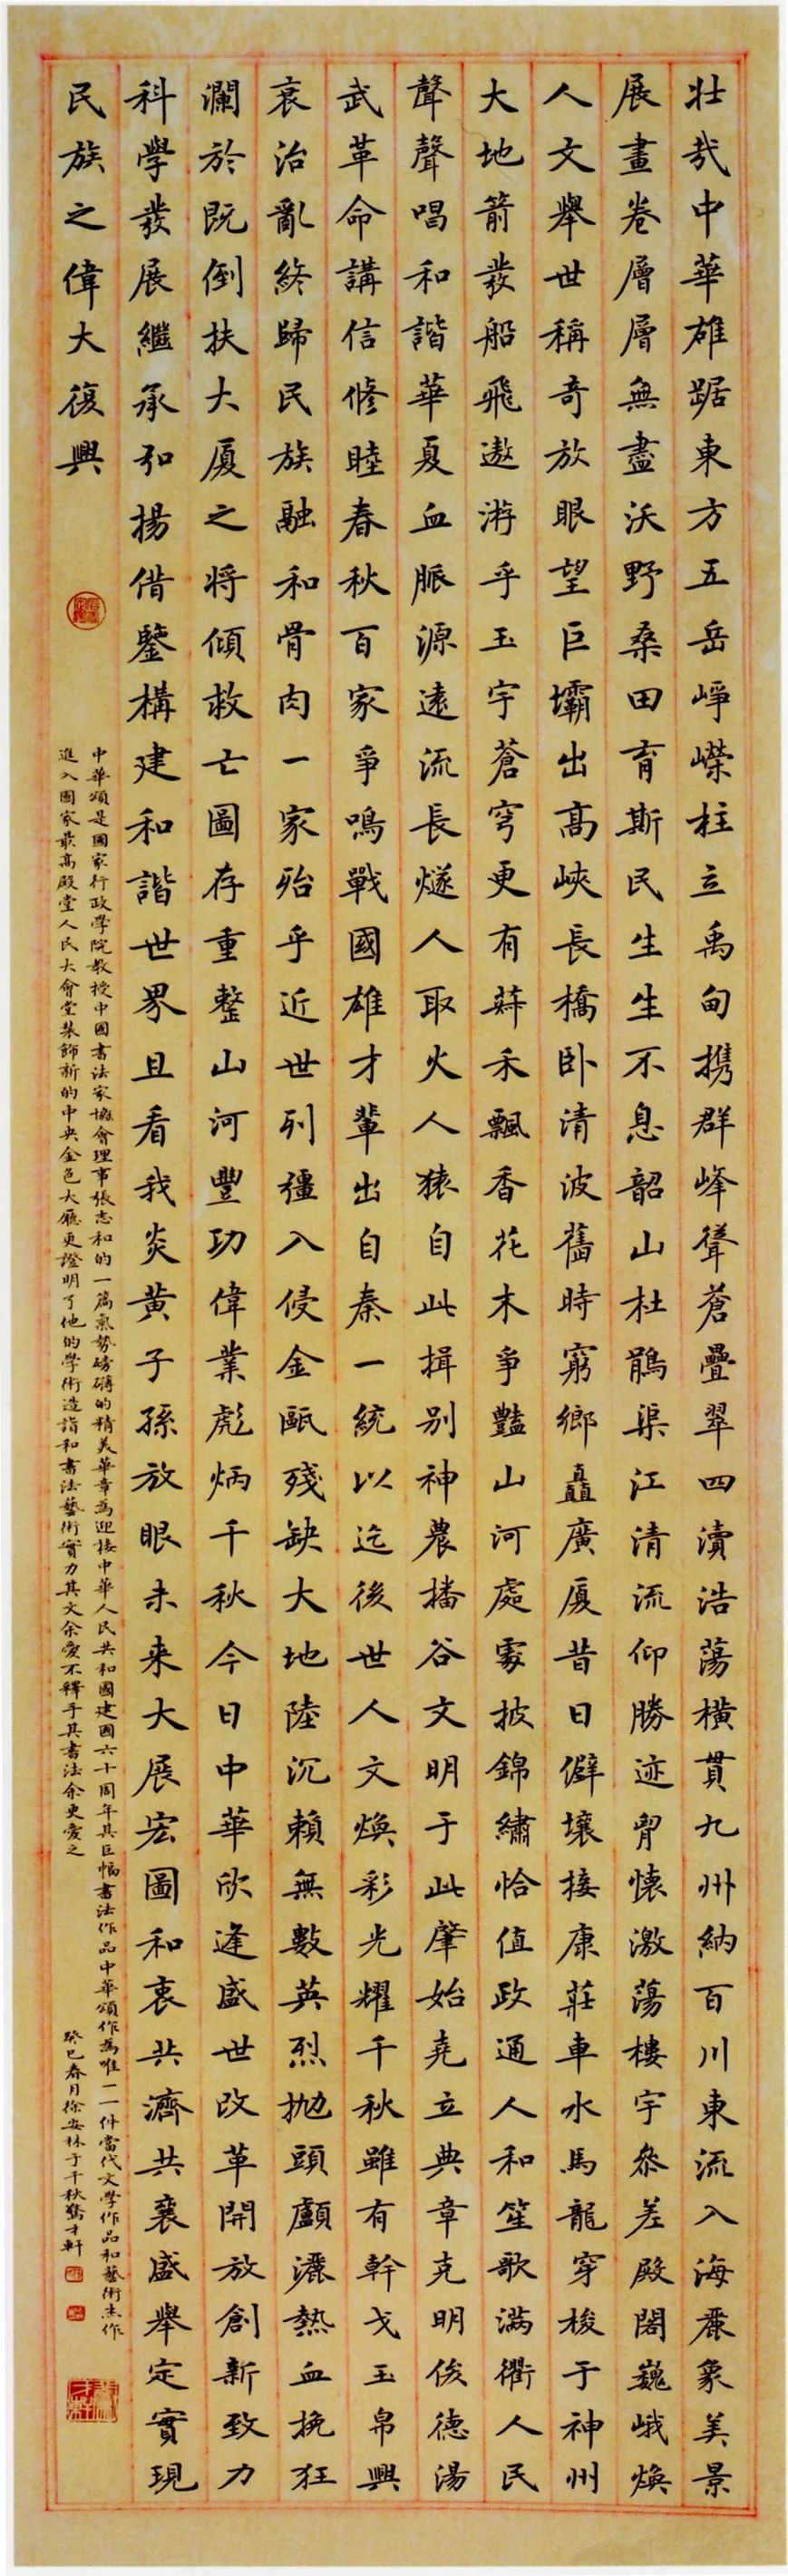 壯哉中華雄踞東方五岳崢嶸柱立禹甸攜群峰聳蒼疊翠四瀆浩蕩橫貫九州納百川東流入海麗象美景
展畫卷層層無盡沃野桑田育斯民生生不息韶山杜鵑渠江清流仰勝迹胷懷激蕩樓宇參差殿閣巍峨煥
人文舉世稱奇放眼望巨壩出高峽長橋卧清波舊時窮鄉矗廣厦昔日僻壤接康莊車水馬龍穿梭于神州
大地箭發船飛遨游乎玉宇蒼穹更有蒔禾飄香花木爭豔山河處處披錦繡恰值政通人和笙歌滿衢人民
聲聲唱和諧華夏血脈源遠流長燧人取火人猿自此揖別神農播谷文明于此肇始堯立典章克明俊德湯
武革命講信修睦春秋百家爭鳴戰國雄才輩出自秦一統以迄後世人文煥彩光耀千秋雖有幹戈玉帛興
衰治亂終歸民族融和骨肉一家殆乎近世列疆入侵金甌殘缺大地陸沉賴無數英烈拋頭顱灑熱血挽狂
瀾於既倒扶大厦之將傾救亡圖存重整山河豐功偉業彪炳千秋今日中華欣逢盛世改革開放創新致力
科學發展繼承弘揚借鑒構建和諧世界且看我炎黃子孫放眼未來大展宏圖和衷共濟共襄盛舉定實現
民族之偉大復興
中華頌是國家行政學院教授中國書法家協會理事張志和的一篇氣勢磅礡的精美華章為迎接中華人民共和國建國六十周年其巨幅書法作品中華頌作為唯一一件當代文學作品和藝術杰作
進入國家最高殿堂人民大會堂裝飾新的中央金色大廳更證明了他的學術造詣和書法藝術實力其文余愛不釋手其書法余更愛之
癸巳春月徐安林于千秋驚才軒